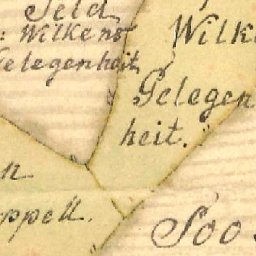 Feld
: Wilkens
Gelegenheit
Wilk
Gelegen
heit.
n
ppell.
Soo